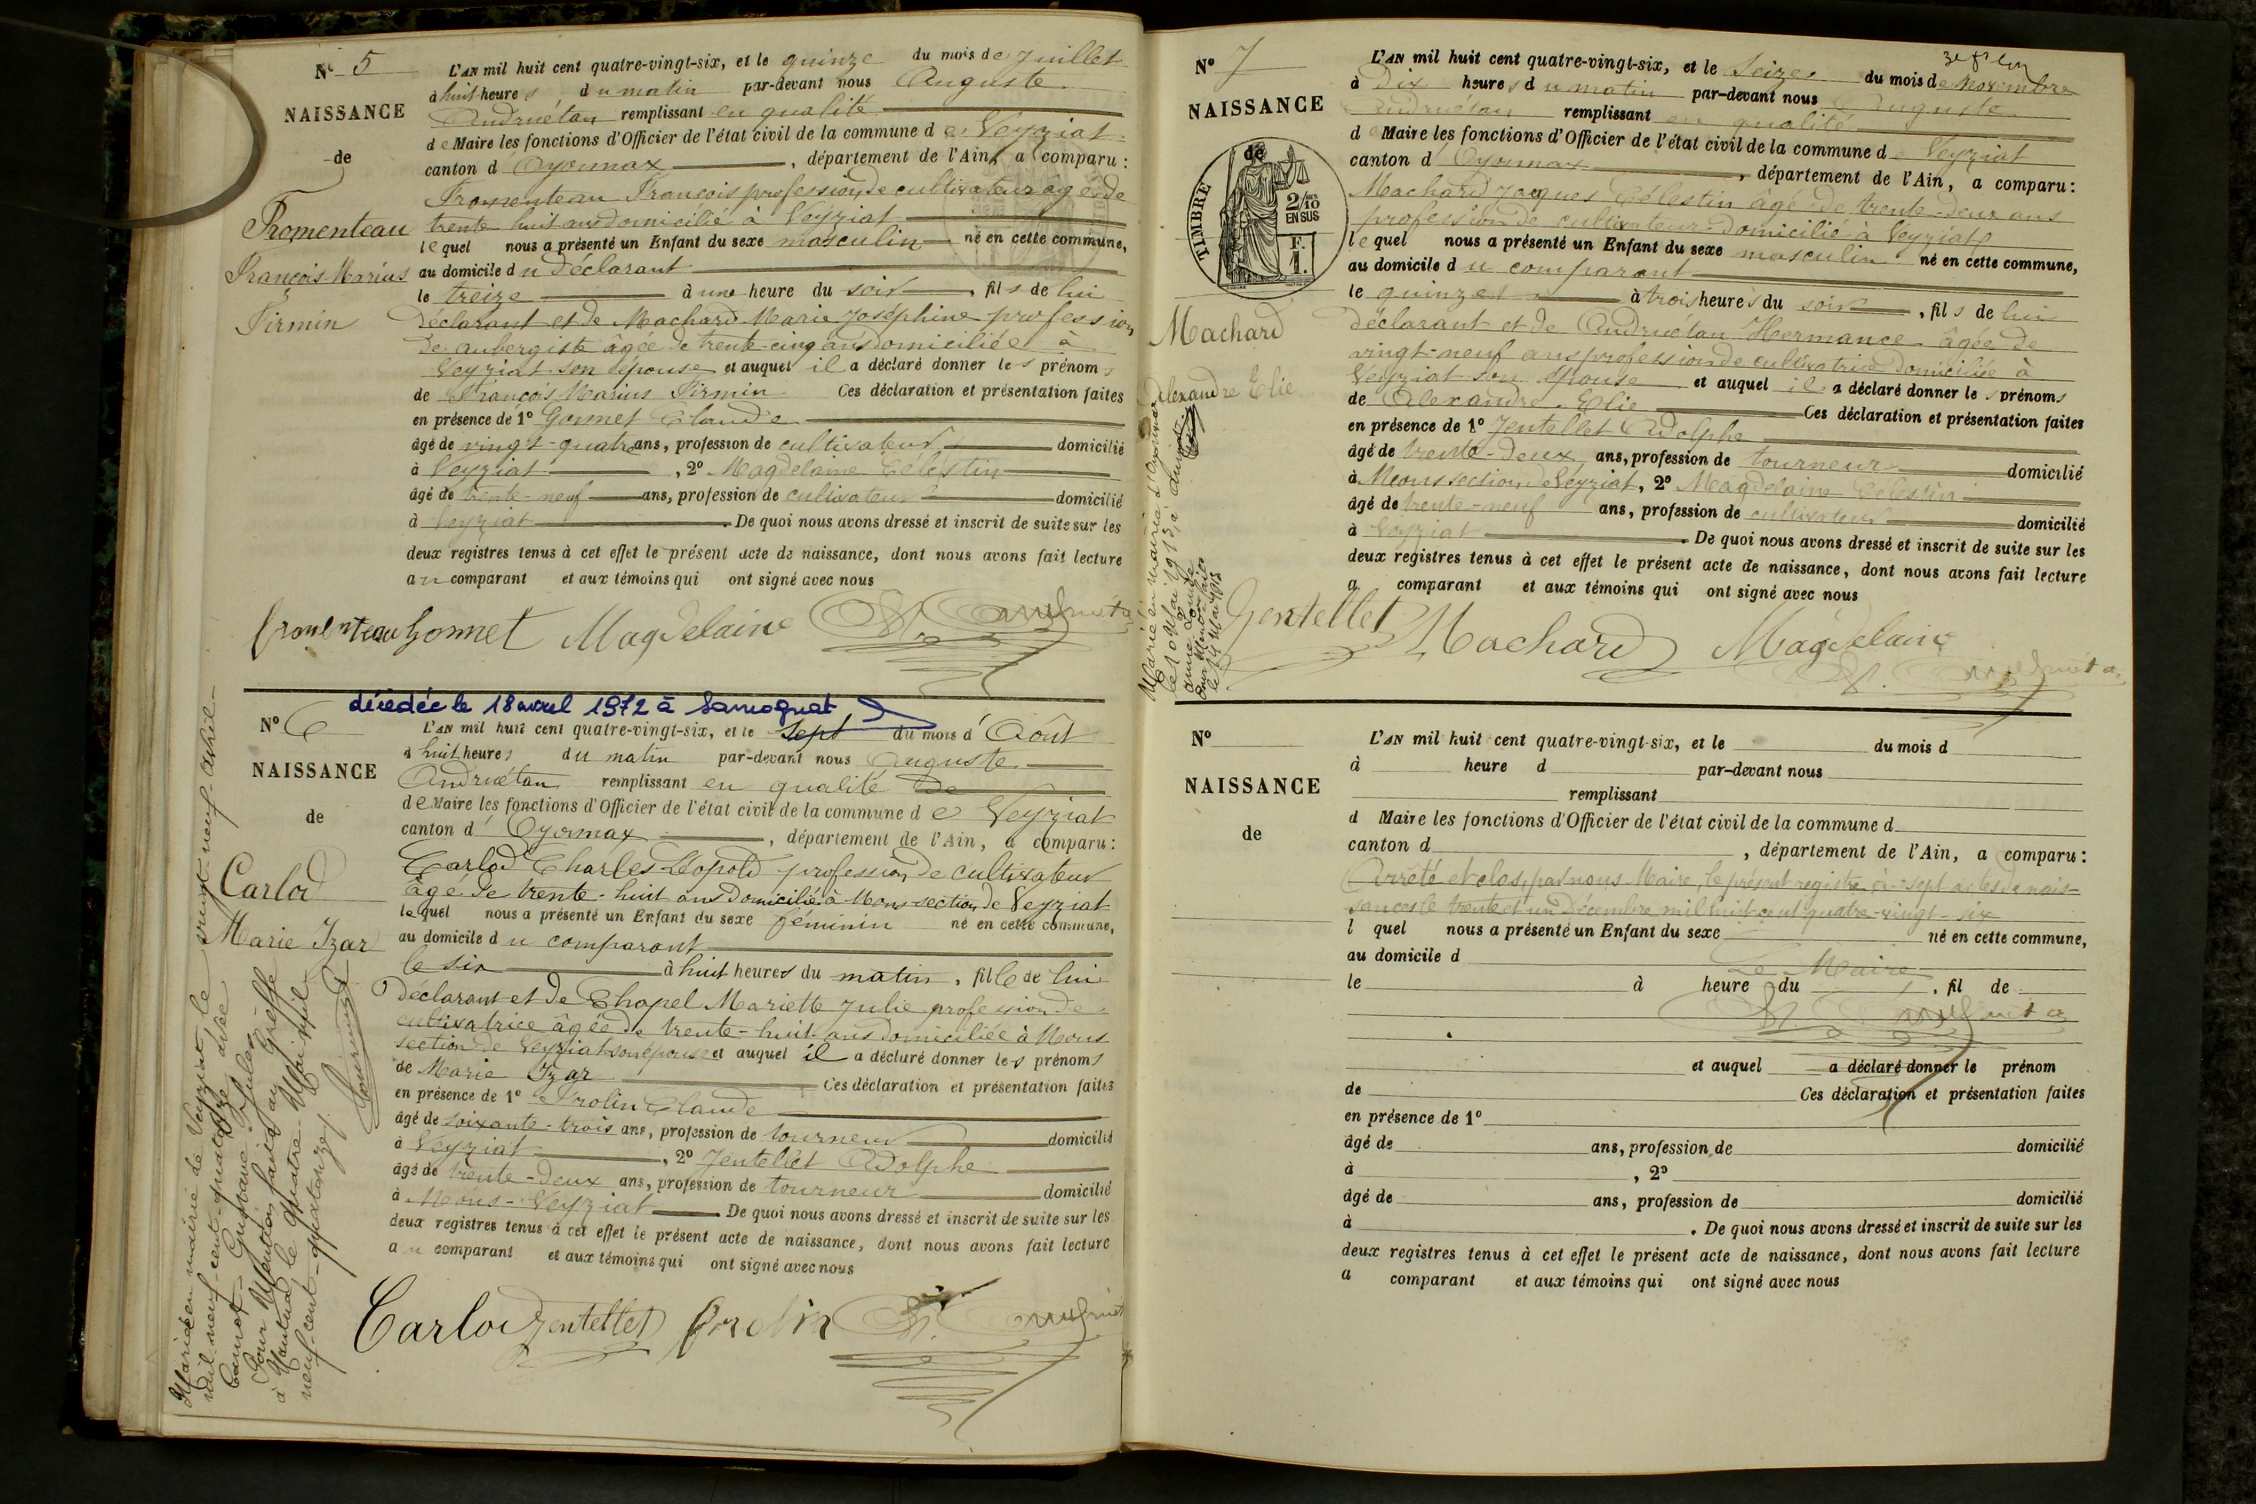 N° 5
NAISSANCE
de
Fromenteau
François Marius
Firmin
L'AN mil huit cent quatre-vingt-six, et le quinze du mois de Juillet
à huit heures du matin par-devant nous Auguste
Andruétan remplissant en qualité
de Maire les fonctions d'Officier de l'état civil de la commune de Veyziat
canton d'Oyonnax, département de l'Ain, a comparu :
Fromenteau François profession de cultivateur âgé de
trente huit ans domicilié à Veyziat
lequel nous a présenté un Enfant du sexe masculin né en cette commune,
au domicile du Déclarant
le treize à une heure du soir, fils de lui
déclarant et de Machard Marie Joséphine profession
de aubergiste âgée de trente-cinq ans domiciliée à
Veyziat son épouse et auquel il a déclaré donner les prénoms
de François Marius Firmin Ces déclaration et présentation faites
en présence de 1° Gonnet Claude
âgé de vingt-quatre ans, profession de cultivateur domicilié
à Veyziat, 2° Magdelaine Célestin
âgé de trente-neuf ans, profession de cultivateur domicilié
à Veyziat. De quoi nous avons dressé et inscrit de suite sur les
deux registres tenus à cet effet le présent acte de naissance, dont nous avons fait lecture
au comparant et aux témoins qui ont signé avec nous
fromenteau Gonnet Magdelaine
décédée le 18 avril 1972 à Samognat
N° 6
NAISSANCE
de
Carlod
Marie Izar
L'AN mil huit cent quatre-vingt-six, et le sept du mois d'Août
à huit heures du matin par-devant nous Auguste
Andruétan remplissant en qualité de
de Maire les fonctions d'Officier de l'état civil de la commune de Veyziat
canton d'Oyonnax, département de l'Ain, a comparu :
Carlod Charles Léopold profession de cultivateur
âgé de trente-huit ans domicilié à Mons section de Veyziat
lequel nous a présenté un Enfant du sexe féminin né en cette commune,
au domicile du comparant
le six à huit heures du matin, fille de lui
Déclarant et de Chapel Mariette Julie profession de
cultivatrice âgée de trente-huit ans domiciliée à Mons
section de Veyziat son épouse et auquel il a déclaré donner les prénoms
de Marie Izar Ces déclaration et présentation faites
en présence de 1° Prolin Claude
âgé de soixante-trois ans, profession de tourneur domicilié
à Veyziat, 2° Jentellet Adolphe
âgé de trente-deux ans, profession de tourneur domicilié
à Mons-Veyziat. De quoi nous avons dressé et inscrit de suite sur les
deux registres tenus à cet effet le présent acte de naissance, dont nous avons fait lecture
au comparant et aux témoins qui ont signé avec nous
Carlod Jentellet Prolin
Mariée en mairie de Veyziat le vingt-neuf-avril-
mil neuf-cent-quatorze avec
Jules
Pour Mention faite au Greffe
à Nantua le quatre-Mai mil-
neuf-cent-quatorze/.
N° 7
NAISSANCE
de
TIMBRE
2/10
EN SUS
F.
1.
Machard
Alexandre Elie
L'AN mil huit cent quatre-vingt-six, et le Seize du mois de Novembre
à Dix heures du matin par-devant nous Auguste
Andruétan remplissant en qualité
de Maire les fonctions d'Officier de l'état civil de la commune d Veyziat
canton d'Oyonnax, département de l'Ain, a comparu :
Machard Jacques Célestin âgé de trente-deux ans
profession de cultivateur domicilié à Veyziat
lequel nous a présenté un Enfant du sexe masculin né en cette commune,
au domicile du comparant
le quinze à trois heures du soir, fils de lui
déclarant et de Andruétan Hermance âgée de
vingt-neuf ans profession de cultivatrice domiciliée à
Veyziat son épouse et auquel il a déclaré donner les prénoms
de Alexandre Elie Ces déclaration et présentation faites
en présence de 1° Jentellet Adolphe
âgé de trente-deux ans, profession de tourneur domicilié
à Mons section de Veyziat, 2° Magdelaine Célestin
âgé de trente-neuf ans, profession de cultivateur domicilié
à Veyziat. De quoi nous avons dressé et inscrit de suite sur les
deux registres tenus à cet effet le présent acte de naissance, dont nous avons fait lecture
a comparant et aux témoins qui ont signé avec nous
Jentellet Machard Magdelaine
Marié en mairie d'Oyonnax
le 10 Mai 1913 à
le 14 Mai 1913
N°
NAISSANCE
de
L'AN mil huit cent quatre-vingt-six, et le du mois d
à heure d par-devant nous
remplissant
d Maire les fonctions d'Officier de l'état civil de la commune d
canton d, département de l'Ain, a comparu :
Arrêté et clos, par nous Maire, le présent registre à sept actes de nais-
sances le trente et un Décembre mil huit cent quatre-vingt-six
l quel nous a présenté un Enfant du sexe né en cette commune,
au domicile d
Le Maire
le à heure du, fil de
et auquel a déclaré donner le prénom
de Ces déclaration et présentation faites
en présence de 1°
âgé de ans, profession de domicilié
à, 2°
âgé de ans, profession de domicilié
à. De quoi nous avons dressé et inscrit de suite sur les
deux registres tenus à cet effet le présent acte de naissance, dont nous avons fait lecture
a comparant et aux témoins qui ont signé avec nous